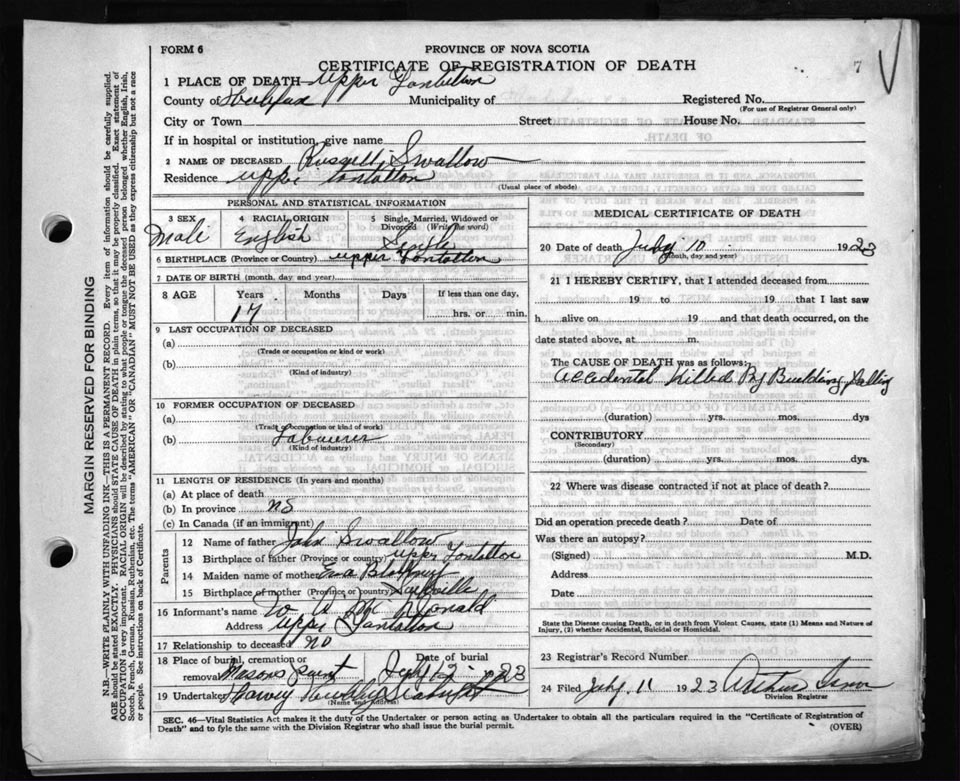 FORM 6
PROVINCE OF NOVA SCOTIA
CERTIFICATE OF REGISTRATION OF DEATH
7
1 PLACE OF DEATH— Upper Tantallon
County of Halifax Municipality of Registered No.
(For use of Registrar General only)
City or Town Street House No.
If in hospital or institution, give name
2 NAME OF DECEASED Russell Swallow
Residence Upper Tantallon
(Usual place of abode)
PERSONAL AND STATISTICAL INFORMATION
3 SEX
Male
4 RACIAL ORIGIN
English
5 Single, Married, Widowed or Divorced (Write the word)
Single
6 BIRTHPLACE (Province or Country) Upper Tantallon
7 DATE OF BIRTH (month, day and year)
8 AGE Years Months Days If less than one day,
17 hrs. or min.
9 LAST OCCUPATION OF DECEASED
(a)
(Trade or occupation or kind or work)
(b)
(Kind of industry)
10 FORMER OCCUPATION OF DECEASED
(a)
(Trade or occupation or kind of work)
(b) Labourer
(Kind of industry)
11 LENGTH OF RESIDENCE (In years and months)
(a) At place of death
(b) In province NS
(c) In Canada (if an immigrant)
Parents
12 Name of father John Swallow
13 Birthplace of father (Province or country) Upper Tantallon
14 Maiden name of mother Eva
15 Birthplace of mother (Province or country) Sackville
16 Informant's name
Address Upper Tantallon
17 Relationship to deceased no
18 Place of burial, cremation or removal Masons Point Date of burial July 12 1923
19 Undertaker Harvey
(Name and address)
MEDICAL CERTIFICATE OF DEATH
20 Date of death July 10 1923
(Month, day and year)
21 I HEREBY CERTIFY, that I attended deceased from
19 to 19 that I last saw
h alive on 19 and that death occurred, on the
date stated above, at m.
The CAUSE OF DEATH was as follows:
Accidental Killed By Building Falling
(duration) yrs. mos. dys
CONTRIBUTORY
(Secondary)
(duration) yrs. mos. dys.
22 Where was disease contracted if not at place of death?
Did an operation precede death? Date of
Was there an autopsy?
(Signed) M.D.
Address
Date
State the Disease causing Death, or in death from Violent Causes, state (1) Means and Nature of Injury, (2) whether Accidental, Suicidal or Homicidal.
23 Registrar's Record Number
24 Filed July 11 1923 Arthur
Division Registrar
SEC. 46—Vital Statistics Act makes it the duty of the Undertaker or person acting as Undertaker to obtain all the particulars required in the "Certificate of Registration of
Death" and to fyle the same with the Division Registrar who shall issue the burial permit.
(OVER)
MARGIN RESERVED FOR BINDING
N.B.—WRITE PLAINLY WITH UNFADING INK—THIS IS A PERMANENT RECORD. Every item of information should be carefully supplied.
AGE should be stated EXACTLY. PHYSICIANS should STATE CAUSE OF DEATH in plain terms, so that it may be properly classified. Exact statement of
OCCUPATION is very important. RACIAL ORIGIN will be described by stating to what people or tongue the deceased person belonged whether English, Irish,
Scotch, French, German, Russian, Ruthenian, etc. The terms "AMERICAN" OR "CANADIAN" MUST NOT BE USED as they express citizenship but not a race
or people. See instructions on back of Certificate.